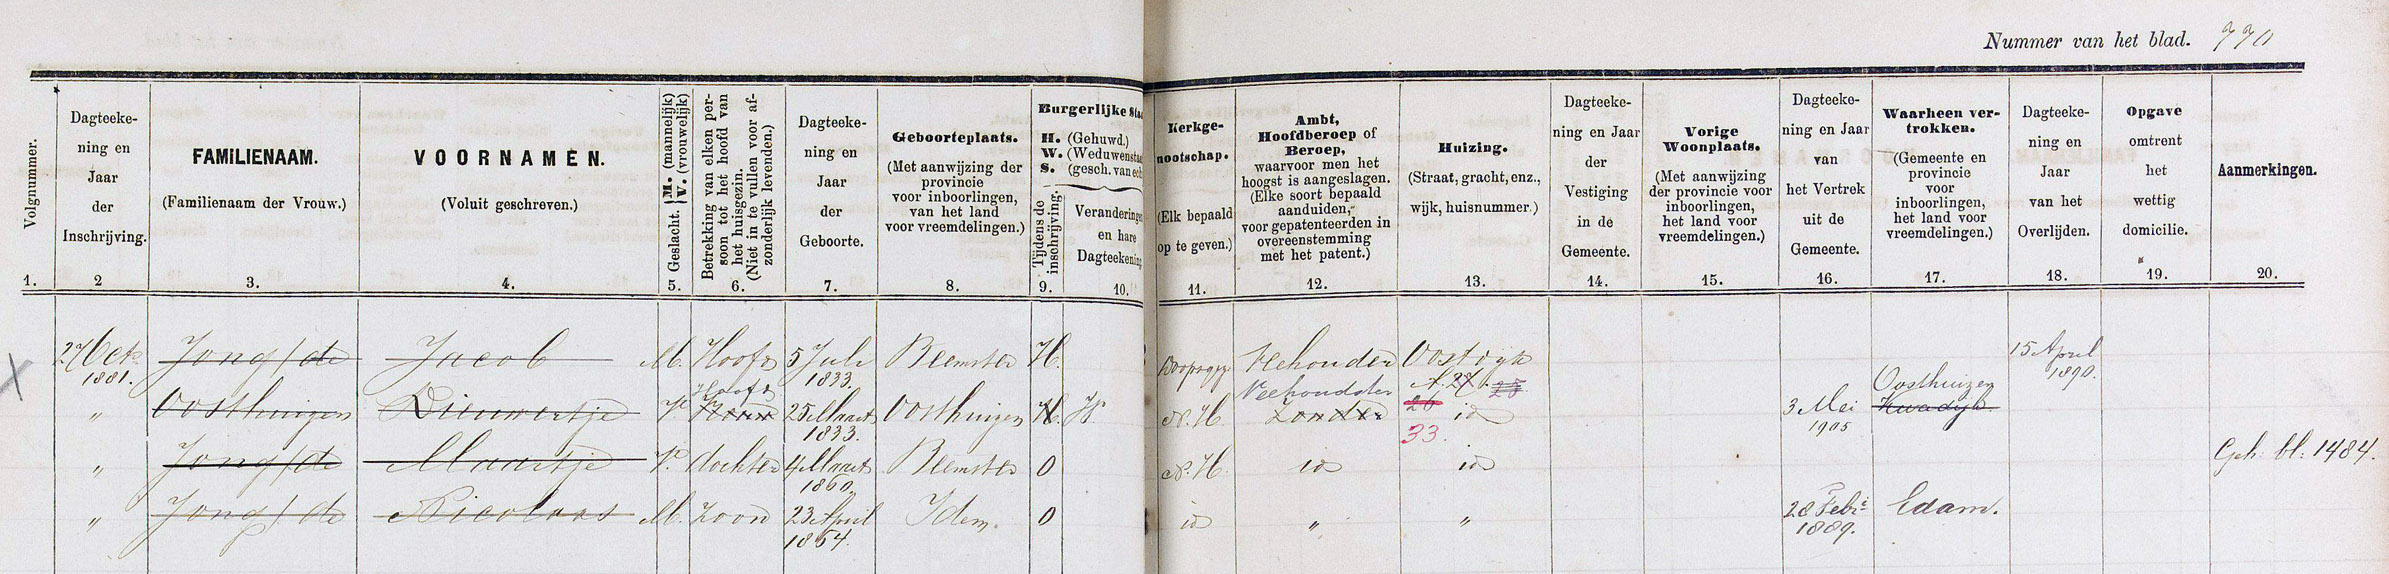 Nummer van het blad. 770
Volgnummer.
1.
Dagteeke-
ning en
Jaar
der
Inschrijving.
2
FAMILIENAAM.
(Familienaam der Vrouw.)
3.
VOORNAMEN.
(Voluit geschreven.)
4.
Geslacht. M. (mannelijk)
V. (vrouwelijk)
5.
Betrekking van elken per-
soon tot het hoofd van
het huisgezin.
(Niet in te vullen voor af-
zonderlijk levenden.)
6.
Dagteeke-
ning en
Jaar
der
Geboorte.
7.
Geboorteplaats.
(Met aanwijzing der
provincie
voor inboorlingen,
van het land
voor vreemdelingen.)
8.
Burgerlijke Sta
H. (Gehuwd.)
W. (Weduwensta
S. (gesch. van ec
Tijdens de
inschrijving.
9.
Veranderingen
en hare
Dagteekening
10.
Kerkge-
nootschap.
(Elk bepaald
op te geven.)
11.
Ambt,
Hoofdberoep of
Beroep,
waarvoor men het
hoogst is aangeslagen.
(Elke soort bepaald
aanduiden,
voor gepatenteerden in
overeenstemming
met het patent.)
12.
Huizing.
(Straat, gracht, enz.,
wijk, huisnummer.)
13.
Dagteeke-
ning en Jaar
der
Vestiging
in de
Gemeente.
14.
Vorige
Woonplaats.
(Met aanwijzing
der provincie voor
inboorlingen,
het land voor
vreemdelingen.)
15.
Dagteeke-
ning en Jaar
van
het Vertrek
uit de
Gemeente.
16.
Waarheen ver-
trokken.
(Gemeente en
provincie
voor
inboorlingen,
het land voor
vreemdelingen.)
17.
Dagteeke-
ning en
Jaar
van het
Overlijden.
18.
Opgave
omtrent
het
wettig
domicilie.
19.
Aanmerkingen.
20.
27 Oct. 1881. Jong / de Jacob M. Hoofd 5 Juli 1833. Beemster H. Doopsgez. Veehouder Oostdijk A. 27. 28 15 April 1890.
" Oosthuizen Dieuwertje V. Hoofd 25 Maart 1833. Oosthuizen H. W. N. H. Veehoudster Zonder 26 33. id 3 Mei 1905 Oosthuizen Kwadijk
" Jong / de Maartje V. dochter 4 Maart 1860. Beemster O N. H. id id Geh. bl. 1484.
" Jong / de Nicolaas M. Zoon 23 April 1864. Idem. O id " " 28 Febr. 1889. Edam.